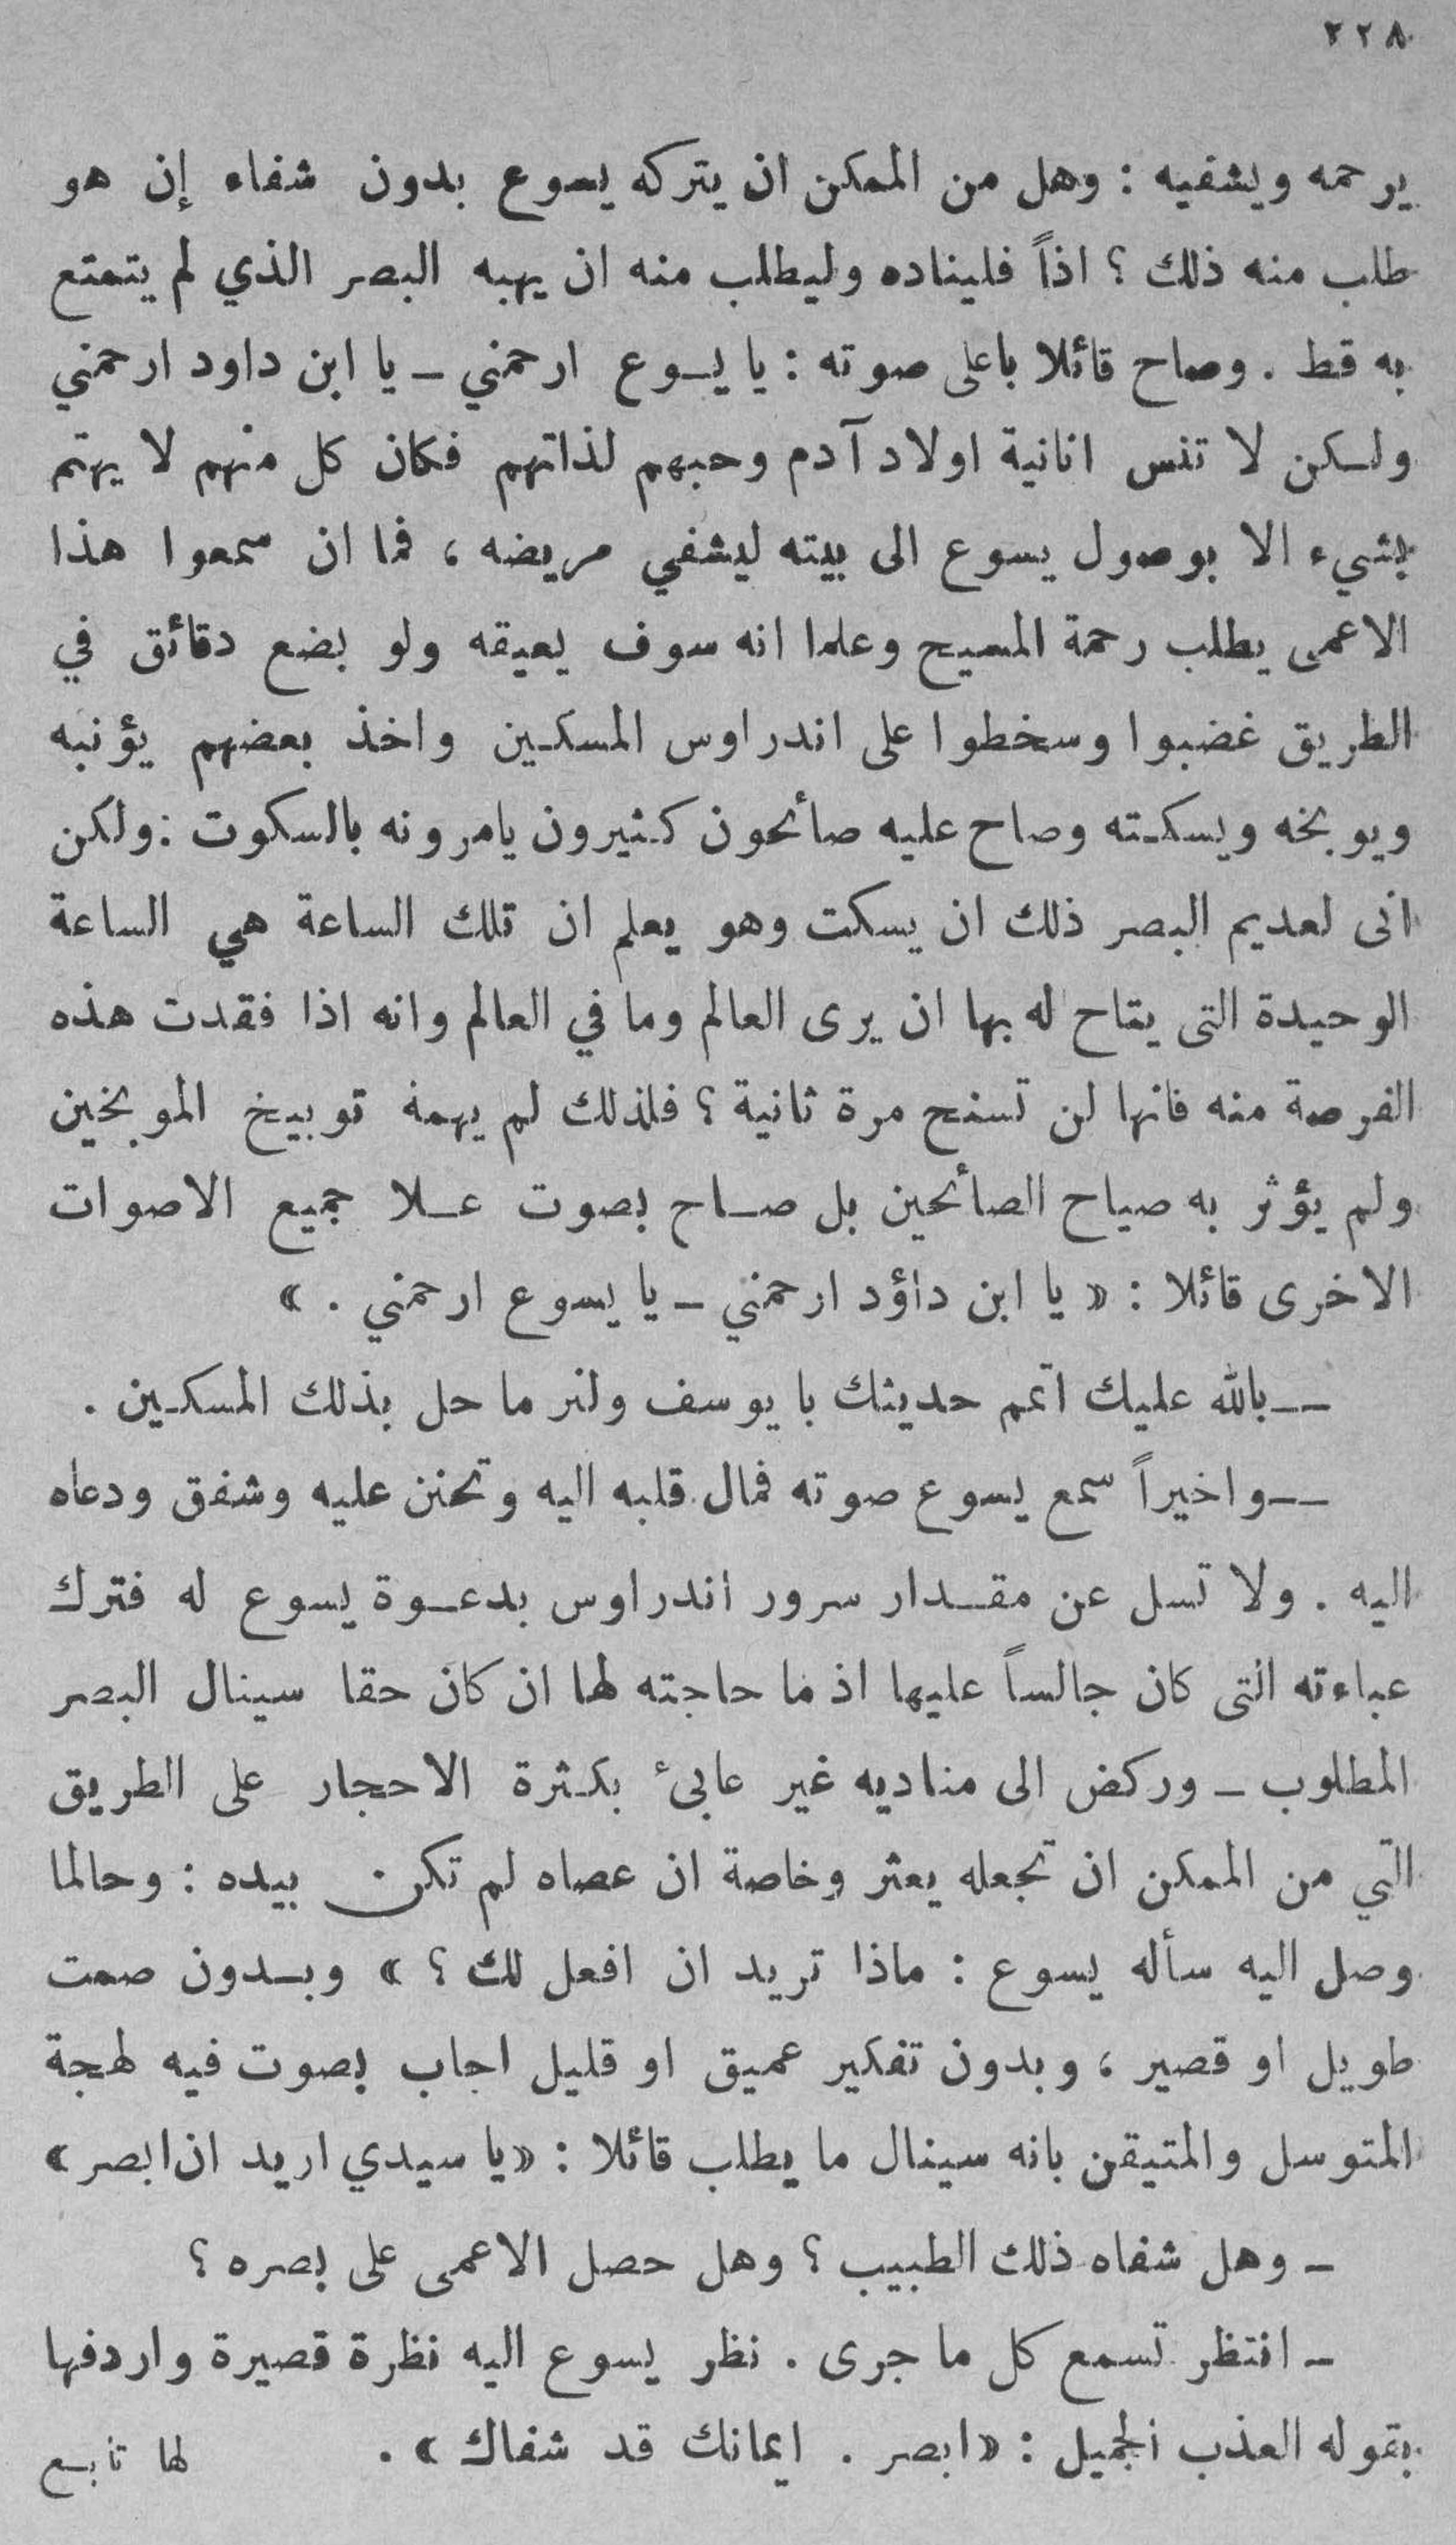 ٢٢٨
يرحمه ويشفيه : وهل من الممكن ان يتركه يسوع بدون شفاء إن هو
طلب منه ذلك ؟ اذاً فليناده وليطلب منه ان يهبه البصر الذي لم يتمتع
به قط . وصاح قائلا باعلى صوته : يا يسوع ارحمني – يا ابن داود ارحمني
ولكن لا تنس انانية اولاد آدم وحبهم لذاتهم فكان كل منهم لا يهتم
بشيء الا بوصول يسوع الى بيته ليشفي مريضه ، فما ان سمعوا هذا
الاعمى يطلب رحمة المسيح وعلما انه سوف يعيقه ولو بضع دقائق في
الطريق غضبوا وسخطوا على اندراوس المسكين واخذ بعضهم يؤنبه
ويوبخه ويسكته وصاح عليه صائحون كثيرون يامرونه بالسكوت : ولكن
انى لعديم البصر ذلك ان يسكت وهو يعلم ان تلك الساعة هي الساعة
الوحيدة التى يتاح له بها ان يرى العالم وما في العالم وانه اذا فقدت هذه
الفرصة منه فانها لن تسنح مرة ثانية ؟ فلذلك لم يهمه توبيخ الموبخين
ولم يؤثر به صياح الصائحين بل صاح بصوت علا جميع الاصوات
الاخرى قائلا : « يا ابن داؤد ارحمني – يا يسوع ارحمني . »
––بالله عليك اتمم حديثك با يوسف ولنر ما حل بذلك المسكين .
––واخيراً سمع يسوع صوته فمال قلبه اليه وتحنن عليه وشفق ودعاه
اليه . ولا تسل عن مقدار سرور اندراوس بدعوة يسوع له فترك
عباءته التى كان جالساً عليها اذ ما حاجته لها ان كان حقا سينال البصر
المطلوب – وركض الى مناديه غير عابئ بكثرة الاحجار على الطريق
التي من الممكن ان تجعله يعثر وخاصة ان عصاه لم تكن بيده : وحالما
وصل اليه سأله يسوع : ماذا تريد ان افعل لك ؟ » وبدون صمت
طويل او قصير ، وبدون تفكير عميق او قليل اجاب بصوت فيه لهجة
المتوسل والمتيقن بانه سينال ما يطلب قائلا : «يا سيدي اريد ان ابصر»
– وهل شفاه ذلك الطبيب ؟ وهل حصل الاعمى على بصره ؟
– انتظر تسمع كل ما جرى . نظر يسوع اليه نظرة قصيرة واردفها
بقوله العذب الجميل : «ابصر . ايمانك قد شفاك » . لها تابع